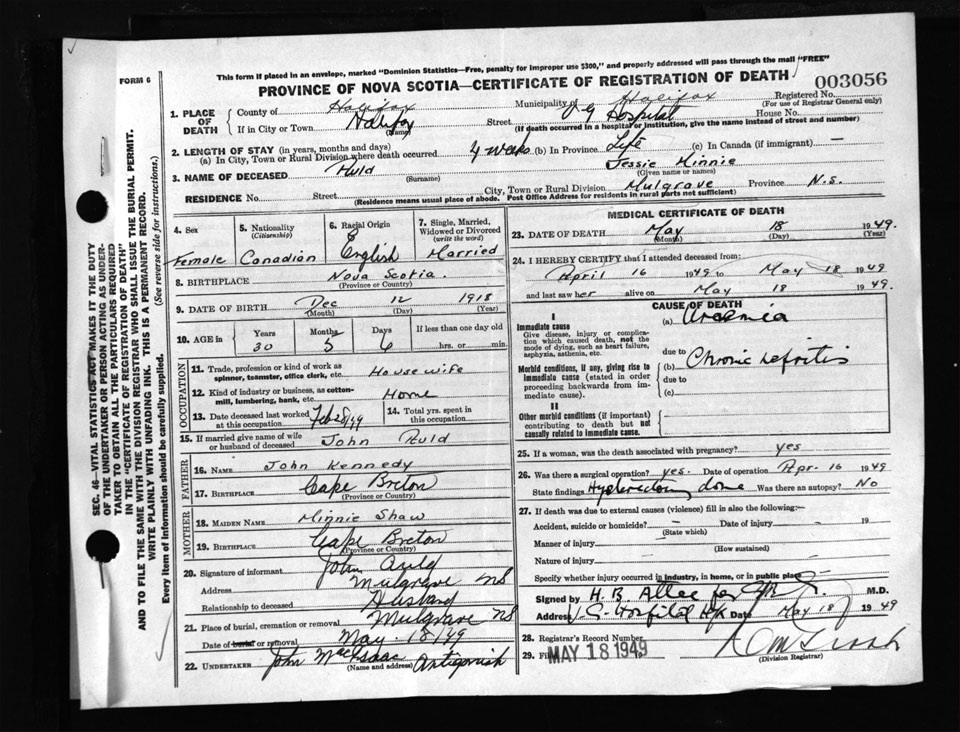 FORM 6
This form if placed in an envelope, marked "Dominion Statistics—Free, penalty for improper use $300," and properly addressed will pass through the mail "FREE"
PROVINCE OF NOVA SCOTIA—CERTIFICATE OF REGISTRATION OF DEATH 003056
1. PLACE OF DEATH County of Halifax Municipality of Halifax Registered No.
(For use of Registrar General only)
If in City or Town Halifax (Name) Street V G Hospital House No.
(If death occurred in a hospital or institution, give the name instead of street and number)
2. LENGTH OF STAY (in years, months and days)
(a) In City, Town or Rural Division where death occurred 4 weeks (b) In Province Life (c) In Canada (if immigrant) —
3. NAME OF DECEASED Auld (Surname) Jessie Minnie (Given name or names)
RESIDENCE No. Street City, Town or Rural Division Mulgrave Province N.S.
(Residence means usual place of abode. Post Office Address for residents in rural parts not sufficient)
4. Sex Female
5. Nationality (Citizenship) Canadian
6. Racial Origin English
7. Single, Married, Widowed or Divorced (write the word) Married
8. BIRTHPLACE Nova Scotia. (Province or Country)
9. DATE OF BIRTH Dec (Month) 12 (Day) 1918 (Year)
10. AGE in Years 30 Months 5 Days 6 If less than one day old hrs. or min.
OCCUPATION
11. Trade, profession or kind of work as spinner, teamster, office clerk, etc. House wife
12. Kind of industry or business, as cotton-mill, lumbering, bank, etc. Home
13. Date deceased last worked at this occupation Feb 28/49 14. Total yrs. spent in this occupation
15. If married give name of wife or husband of deceased John Auld
FATHER
16. NAME John Kennedy
17. BIRTHPLACE Cape Breton (Province or Country)
MOTHER
18. MAIDEN NAME Minnie Shaw
19. BIRTHPLACE Cape Breton (Province or Country)
20. Signature of informant John Auld
Address Mulgrave NS
Relationship to deceased Husband
21. Place of burial, cremation or removal Mulgrave NS
Date of burial or removal May. 18/49
22. UNDERTAKER John MacIsaac Antigonish
(Name and address)
MEDICAL CERTIFICATE OF DEATH
23. DATE OF DEATH May (Month) 18 (Day) 1949. (Year)
24. I HEREBY CERTIFY that I attended deceased from:
April 16 1949 to May 18 1949
and last saw her alive on May 18 1949.
CAUSE OF DEATH
I
Immediate cause
Give disease, injury or complication which caused death, not the mode of dying, such as heart failure, asphyxia, asthenia, etc.
(a) Uraemia
due to
Morbid conditions, if any, giving rise to immediate cause (stated in order proceeding backwards from immediate cause).
(b) Chronic nefritis
due to
(c)
II
Other morbid conditions (if important) contributing to death but not causally related to immediate cause.
25. If a woman, was the death associated with pregnancy? yes
26. Was there a surgical operation? yes. Date of operation Apr. 16 1949
State findings Hysterectomy done Was there an autopsy? No
27. If death was due to external causes (violence) fill in also the following:
Accident, suicide or homicide? – (State which) Date of injury – 19
Manner of injury (How sustained)
Nature of injury
Specify whether injury occurred in industry, in home, or in public place
Signed by H. B. Atlee per M.D.
Address V. G. Hospital Hfx Date May 18 1949
28. Registrar's Record Number
29. MAY 18 1949
(Division Registrar)
SEC. 46—VITAL STATISTICS ACT MAKES IT THE DUTY
OF THE UNDERTAKER OR PERSON ACTING AS UNDERTAKER TO OBTAIN ALL THE PARTICULARS REQUIRED
IN THE "CERTIFICATE OF REGISTRATION OF DEATH"
AND TO FILE THE SAME WITH THE DIVISION REGISTRAR WHO SHALL ISSUE THE BURIAL PERMIT.
WRITE PLAINLY WITH UNFADING INK. THIS IS A PERMANENT RECORD.
Every item of information should be carefully supplied. (See reverse side for instructions.)